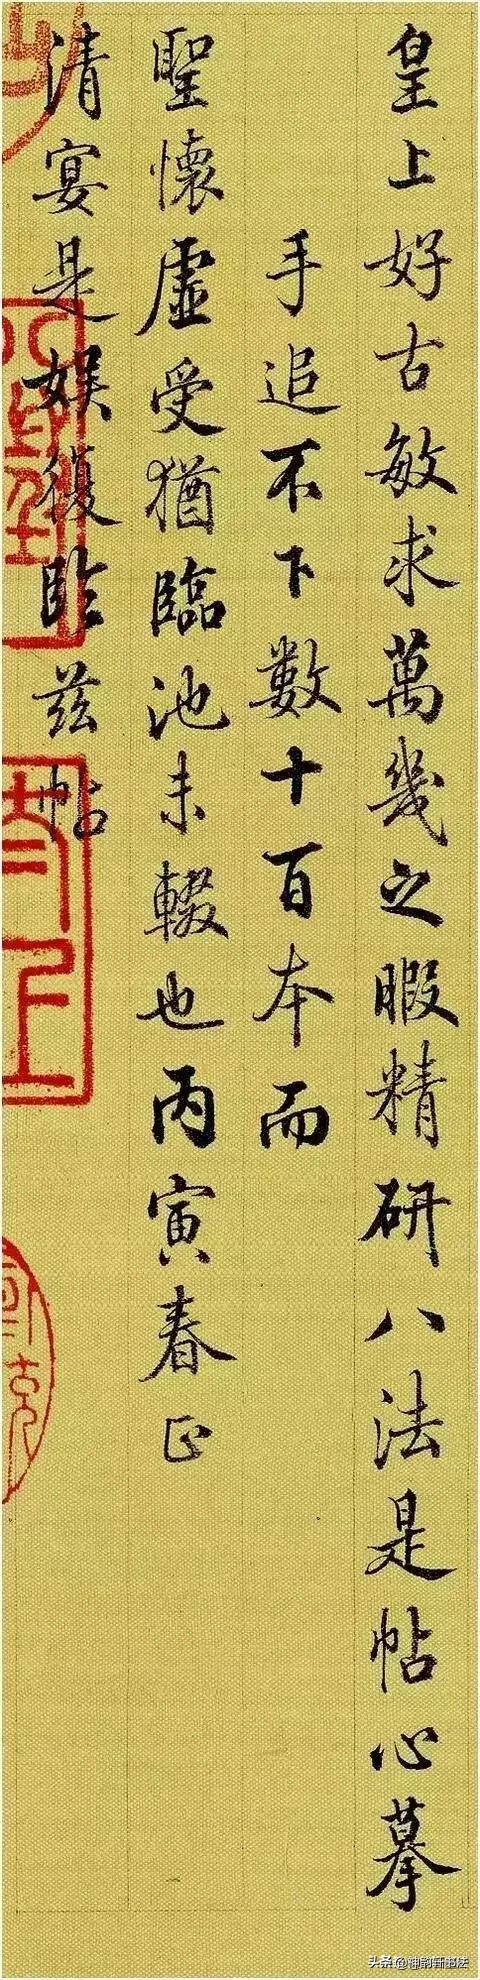 皇上好古敏求萬幾之暇精研八法是帖心摹
手追不下數十百本而
聖懷虛受猶臨池未輟也丙寅春正
清宴是娛復臨茲帖
头条@神韵轩书法